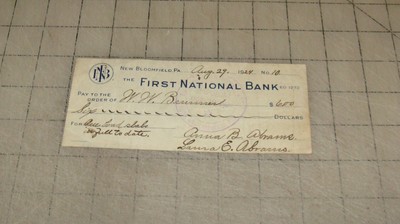 FNB
NEW BLOOMFIELD, PA. Aug. 29, 1928 No. 10
THE FIRST NATIONAL BANK 60-1272
PAY TO THE
ORDER OF W. W. $6.00
Six DOLLARS
FOR slabs
bill to date Anna B. Abrams
Laura E. Abrams